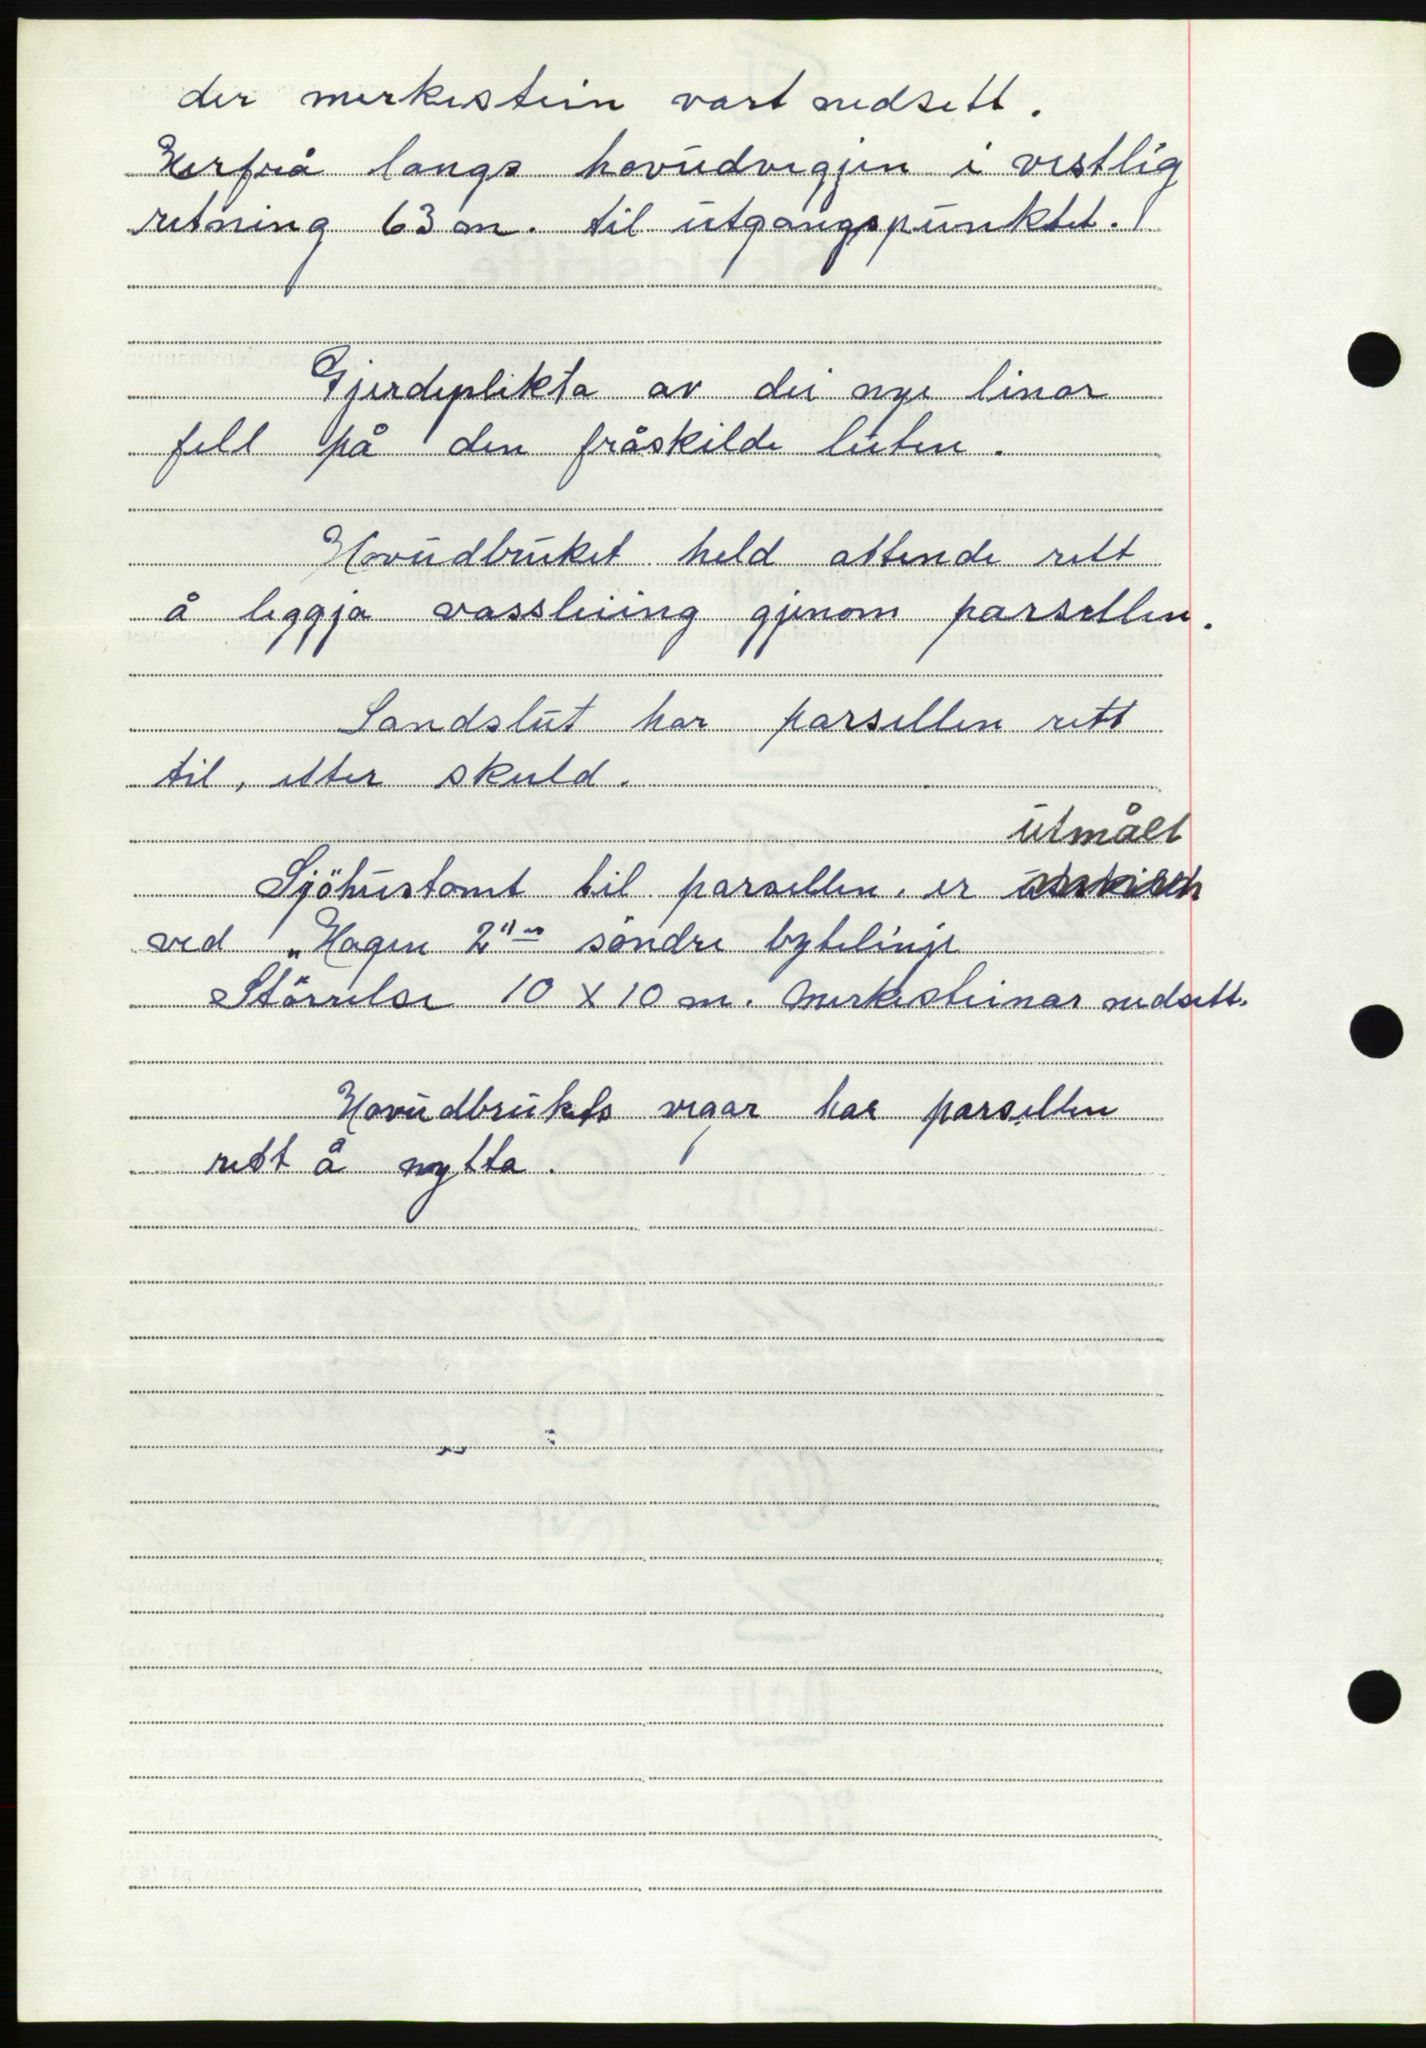 der merkestein vart nedsett.
Herfrå langs hovudveggjen i vestlig
retning 63 m. til utgangspunktet.
Gjerdeplikta av dei nye linor
fell på den fråskilde luten.
Hovudbruket held attende rett
å leggja vassleiing gjenom parsellen.
Sandslut har parsellen rett
til, etter skuld.
utmålt
Sjöhustomt til parsellen, er
ved "Hagen 2" söndre bytelinje
Störrelse 10 x 10 m. Merkesteinar nedsett.
Hovudbrukets vegar har parsellen
rett å nytta.